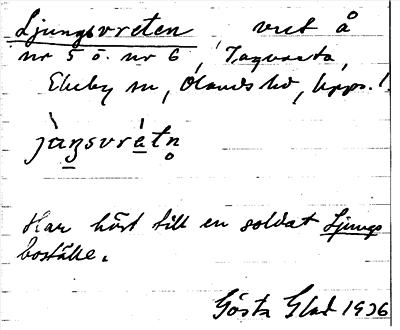 Ljungsvreten, vret å
nr 5 o. nr 6, Tagvasta,
Ekeby sn, Olands hd, Upps. l
jàŋsvrétn̥
Har hört till en soldat Ljungs
boställe.
Gösta Glad 1936